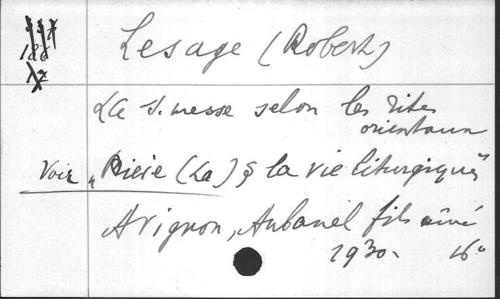 188
12
Lesage (Robert)
La S. messe selon les rites
orientaux
Voir "Prière (La) & la vie liturgique"
Avignon, Aubanel fils aîné
1930. 16°